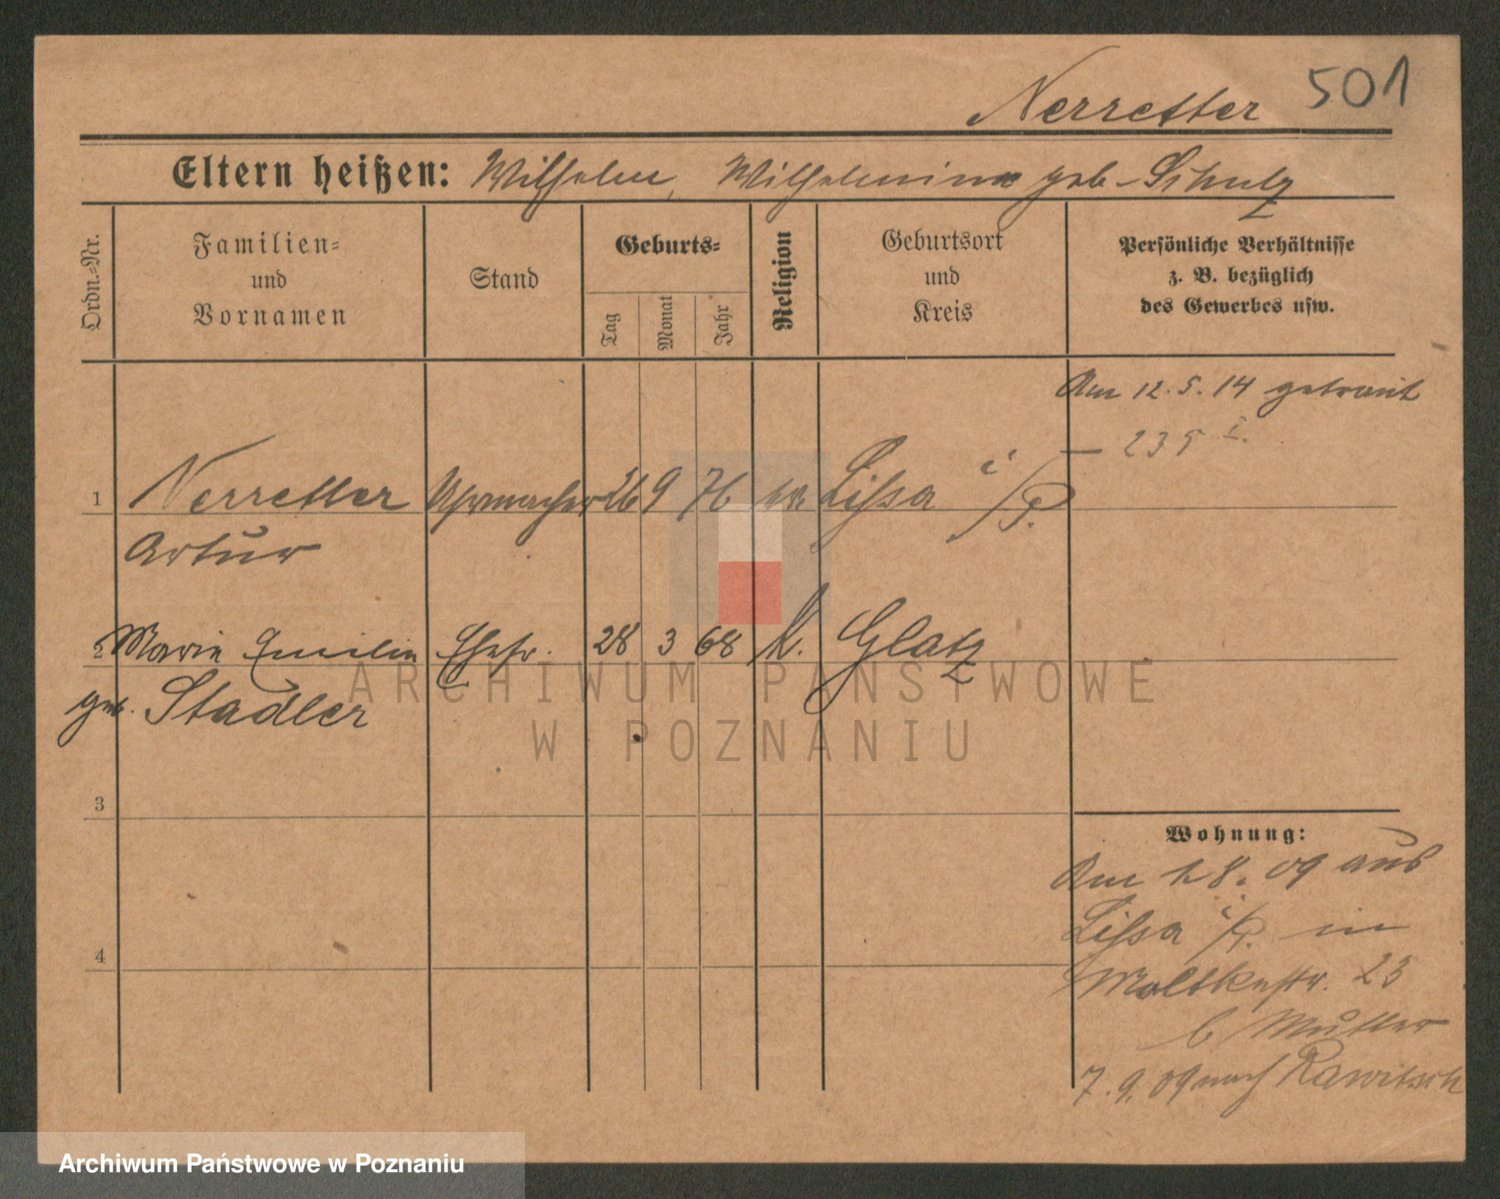 501
Nerretter
Eltern heißen: Wilhelm, Wilhelmine geb. Schulz
Ordn.-Nr.
Familien- und Vornamen
Stand
Geburts-
Tag
Monat
Jahr
Religion
Geburtsort und Kreis
Persönliche Verhältnisse
z. B. bezüglich
des Gewerbes usw.
Am 12.5.14 getraut
– 235 I.
1 Nerretter Uhrmacher 26 9 76 ev. Lissa i/P.
Artur
2 Marie Emilie Ehefr. 28 3 68 k. Glatz
geb. Stadler
ARCHIWUM PAŃSTWOWE
W POZNANIU
3
Wohnung:
Am 1.8.09 aus
Lissa i/P. in
Moltkestr. 23
b Mutter
7.9.09 nach Rawitsch
4
Archiwum Państwowe w Poznaniu